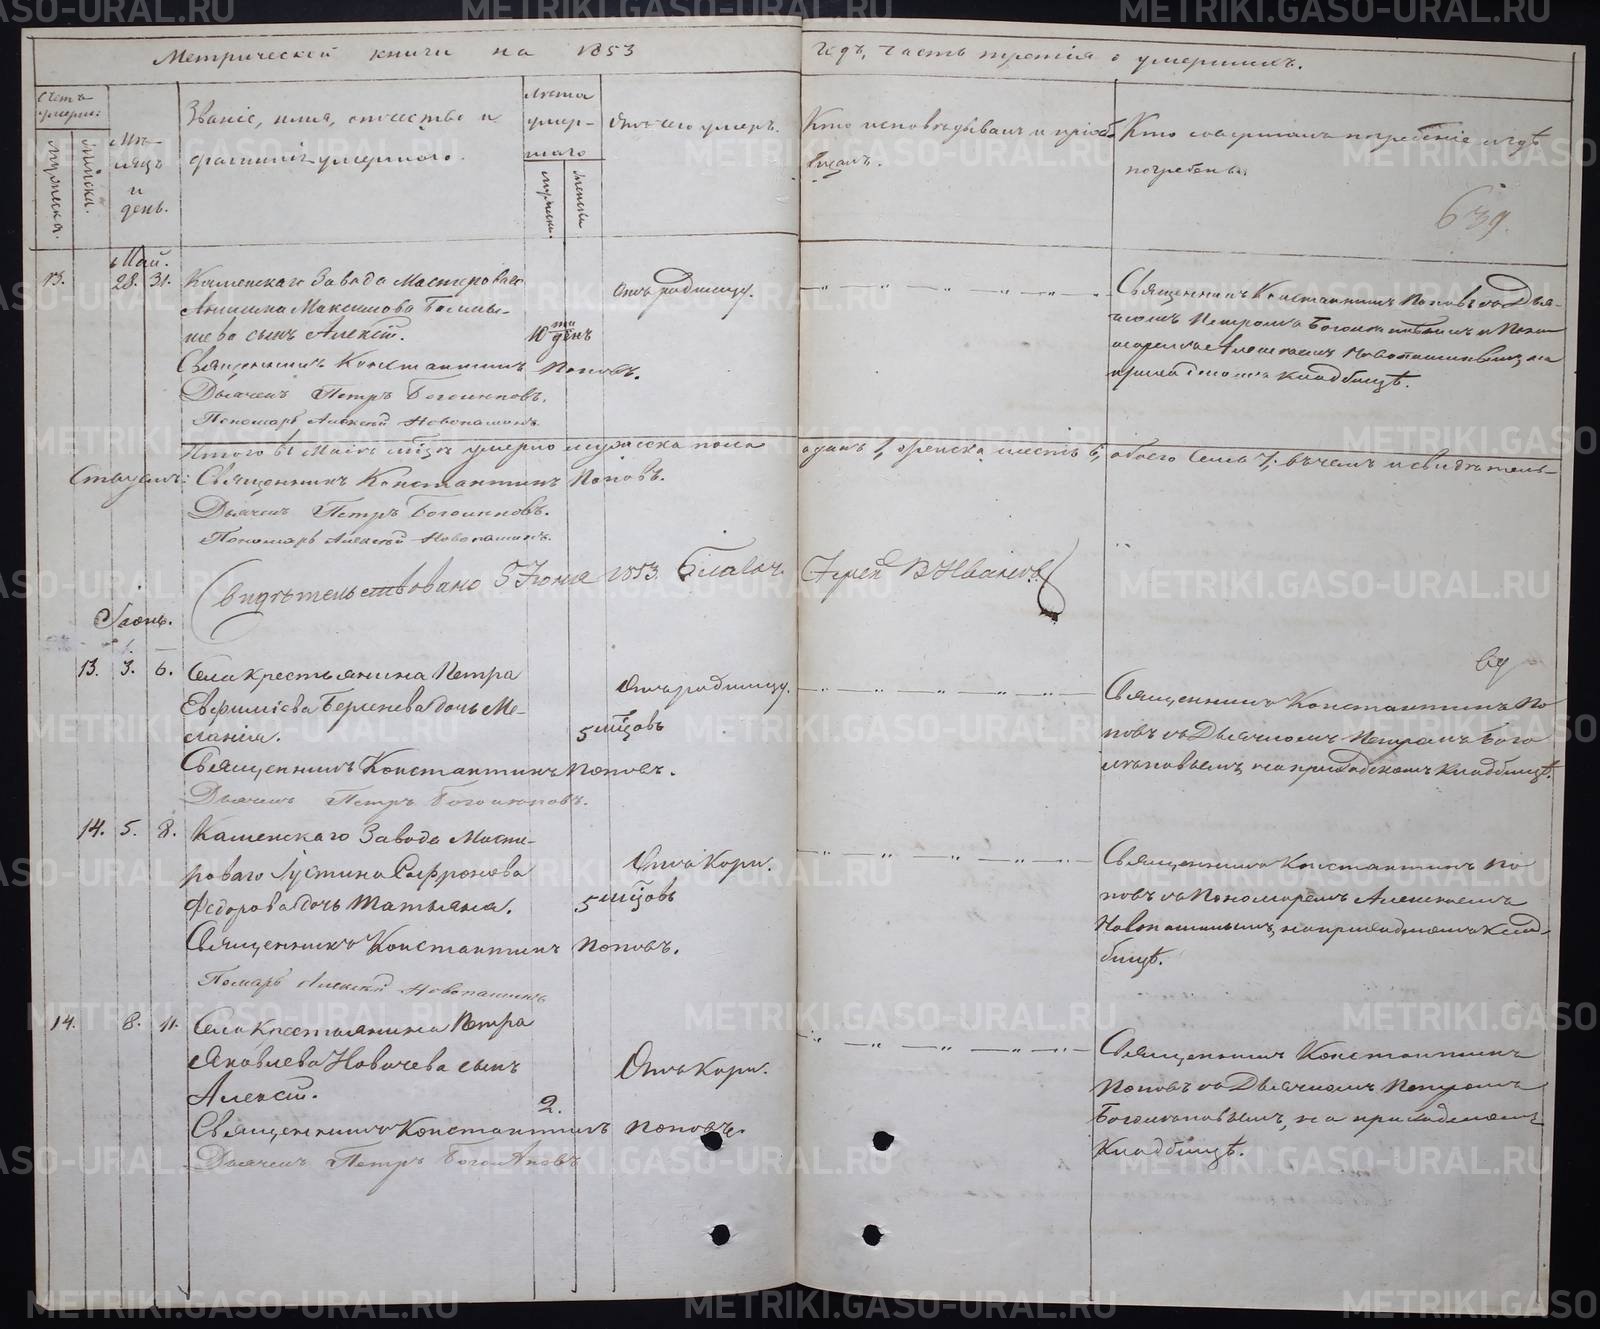 Метрической книги на 1853 годъ, часть третія о умершихъ.
Счетъ умерш:
мужеска.
женска.
Мѣсяцъ и день.
Званіе, имя, отчество и
фамилія умершаго.
Лѣта умершаго
мужски.
женски
Отъ чего умеръ.
Кто исповѣдывалъ и пріоб-
щалъ.
Кто совершалъ погребеніе и гдѣ
погребены.
639.
Май.
13. 28. 31. Каменскаго Завода Мастероваго
Максимова
сынъ Алексѣй.
10 ти день
Отъ родимцу.
Священникъ Константинъ Поповъ.
Дьячекъ Петръ Боголѣповъ.
Пономарь Алексѣй Новопашинъ.
Священникъ Константинъ Поповъ съ Дья-
чкомъ Петромъ Боголѣповымъ и Поно-
маремъ Алексѣемъ Новопашинымъ, на
приходскомъ кладбищѣ.
Итого въ Маѣ мѣцѣ умерло мужеска пола одинъ 1, женска шесть 6, обоего семь 7; въ чемъ и свидѣтель-
ствуемъ: Священникъ Константинъ Поповъ.
Дьячекъ Петръ Боголѣповъ.
Пономарь Алексѣй Новопашинъ.
Свидѣтельствовано 5 Іюня 1853. Благоч. Іерей В Ивановъ
Іюнь.
13. 3. 6. Села крестьянина Петра
Евфиміева дочь Ме-
ланія.
5 мцовъ
Отъ родимцу.
Священникъ Константинъ Поповъ.
Дьячекъ Петръ Боголѣповъ.
Священникъ Константинъ По-
повъ съ Дьячкомъ Петромъ Бого-
лѣповымъ, на приходскомъ кладбищѣ.
14. 5. 8. Каменскаго Завода Масте-
роваго Іустина Софронова
Федорова дочь Татьяна.
5 мцовъ
Отъ Кори.
Священникъ Константинъ Поповъ.
Помарь Алексѣй Новопашинъ
Священникъ Константинъ По-
повъ съ Пономаремъ Алексѣемъ
Новопашинымъ, на приходскомъ клад-
бищѣ.
14. 8. 11. Села Крестьянина Петра
Яковлева сынъ
Алексѣй.
2.
Отъ Кори.
Священникъ Константинъ Поповъ.
Дьячекъ Петръ Боголѣповъ
Священникъ Константинъ
Поповъ съ Дьячкомъ Петромъ
Боголѣповымъ, на приходскомъ
Кладбищѣ.
METRIKI.GASO-URAL.RU